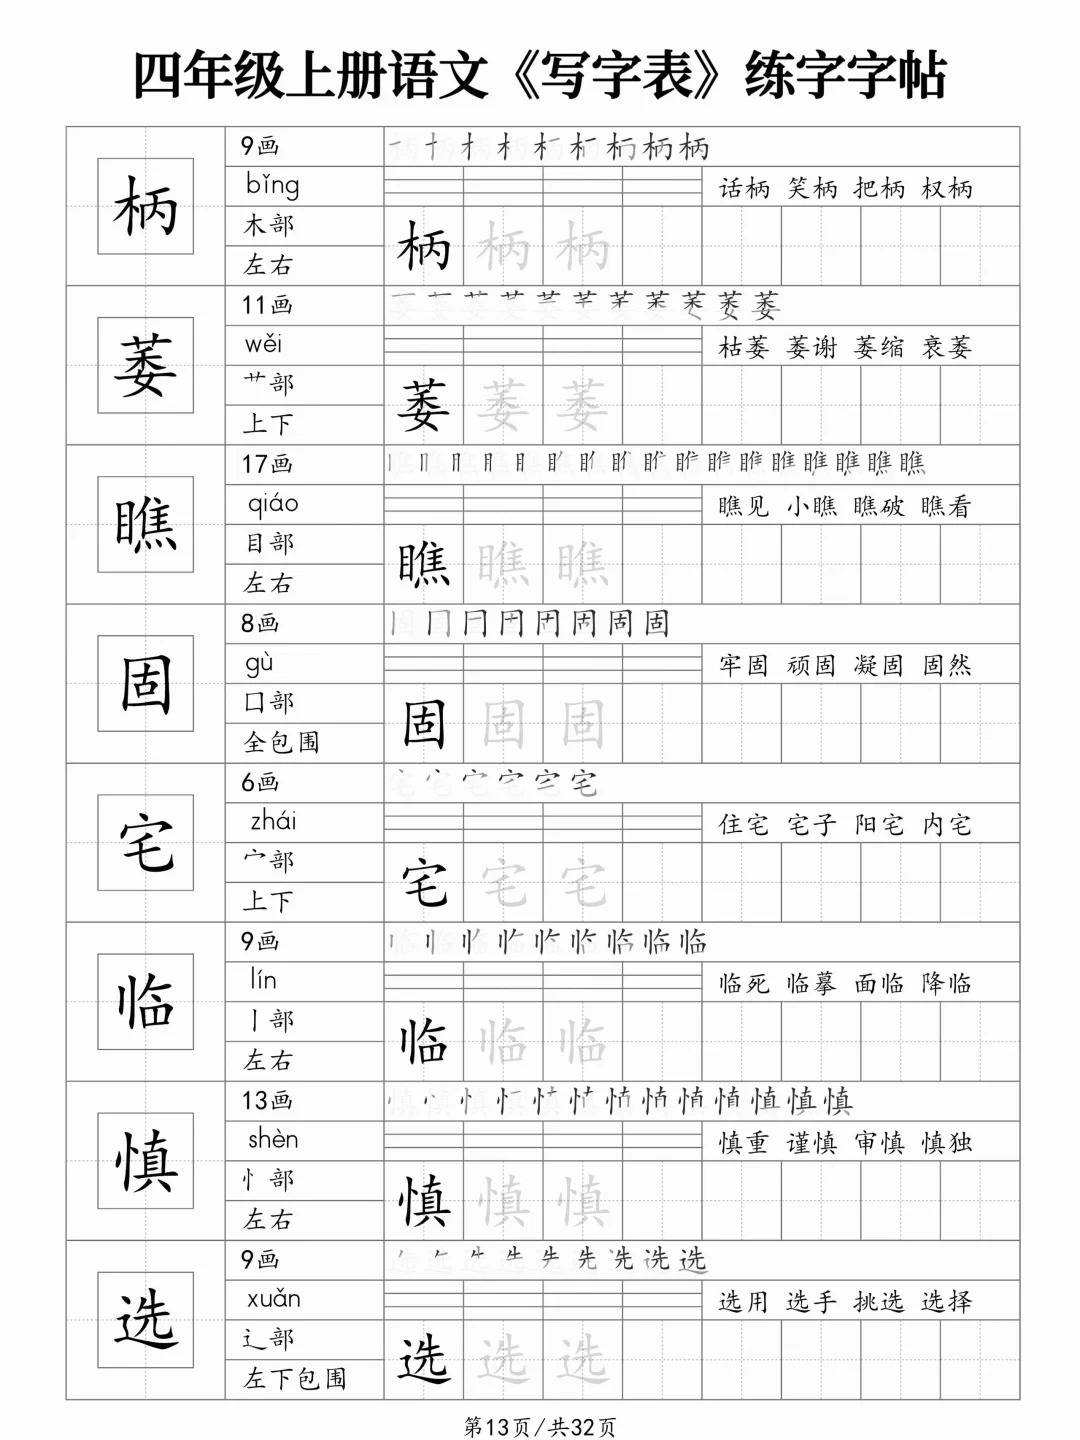 四年级上册语文《写字表》练字字帖
柄
9画
bǐng
话柄 笑柄 把柄 权柄
木部
左右
柄 柄 柄
萎
11画
wěi
枯萎 萎谢 萎缩 衰萎
艹部
上下
萎 萎 萎
瞧
17画
qiáo
瞧见 小瞧 瞧破 瞧看
目部
左右
瞧 瞧 瞧
固
8画
gù
牢固 顽固 凝固 固然
囗部
全包围
固 固 固
宅
6画
zhái
住宅 宅子 阳宅 内宅
宀部
上下
宅 宅 宅
临
9画
lín
临死 临摹 面临 降临
丨部
左右
临 临 临
慎
13画
shèn
慎重 谨慎 审慎 慎独
忄部
左右
慎 慎 慎
选
9画
xuǎn
选用 选手 挑选 选择
辶部
左下包围
选 选 选
第13页/共32页